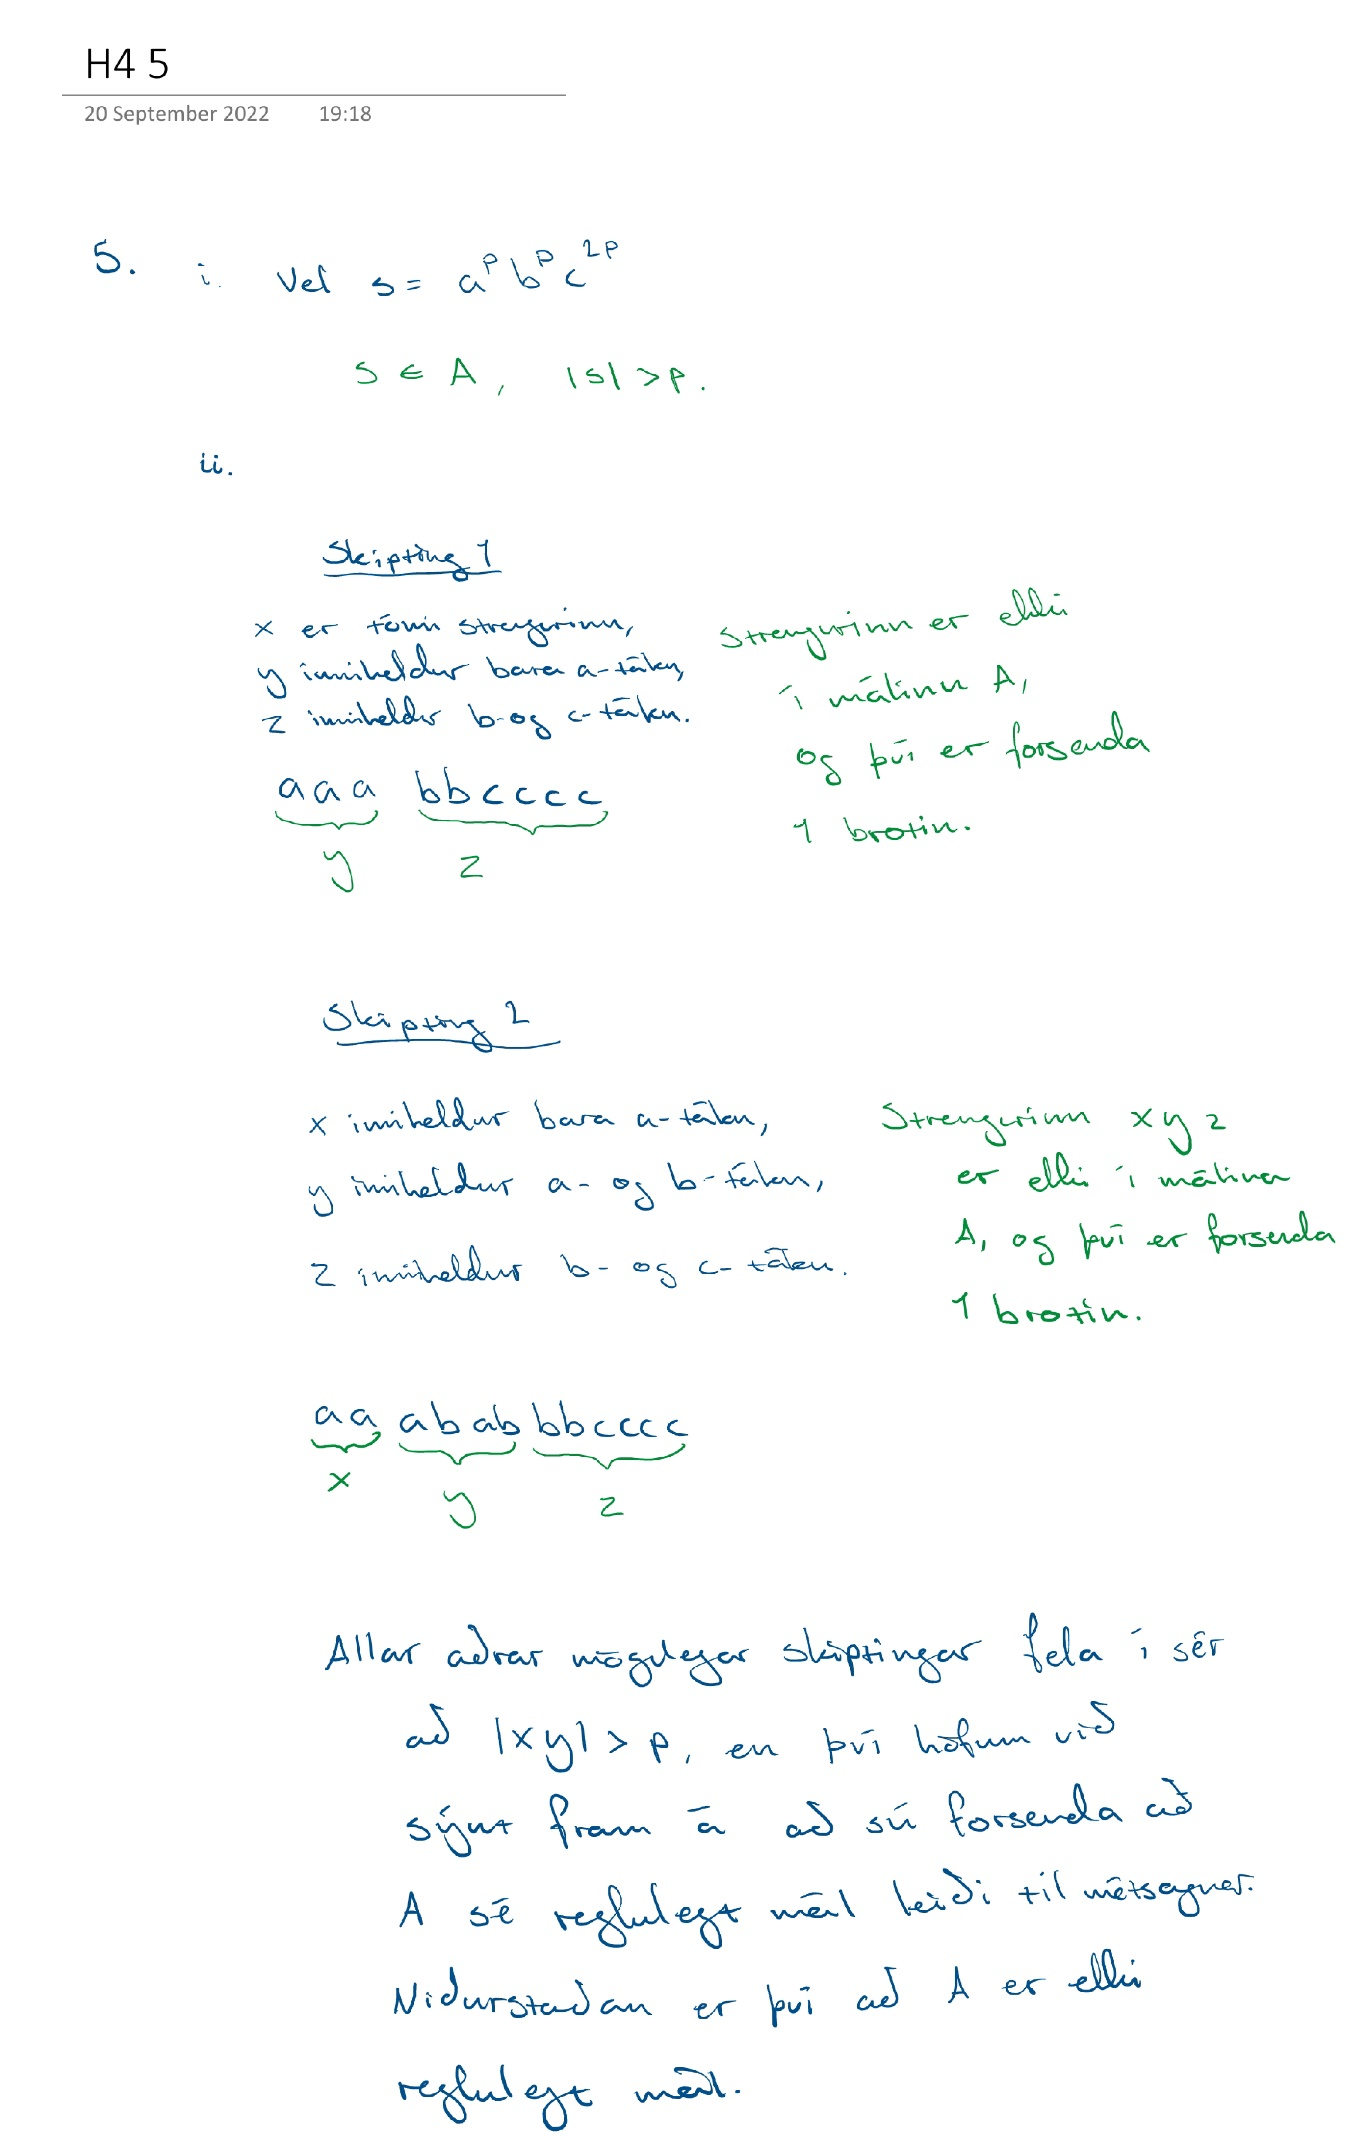 H4 5
20 September 2022 19:18
5. i. Vel s = a^p b^p c^2p
s ∈ A, |s| > p.
ii.
Skipting 1
x er tómi strengurinn,
y inniheldur bara a-tákn,
z inniheldur b- og c-tákn.
Strengurinn er ekki
í málinu A,
og því er forsenda
1 brotin.
aaa bbcccc
y z
Skipting 2
x inniheldur bara a-tákn,
y inniheldur a- og b-tákn,
z inniheldur b- og c-tákn.
Strengurinn xyz
er ekki í málinu
A, og því er forsenda
1 brotin.
aa abab bbcccc
x y z
Allar aðrar mögulegar skiptingar fela í sér
að |xy| > p, en því höfum við
sýnt fram á að sú forsenda að
A sé reglulegt mál leiði til mótsagnar.
Niðurstaðan er því að A er ekki
reglulegt mál.